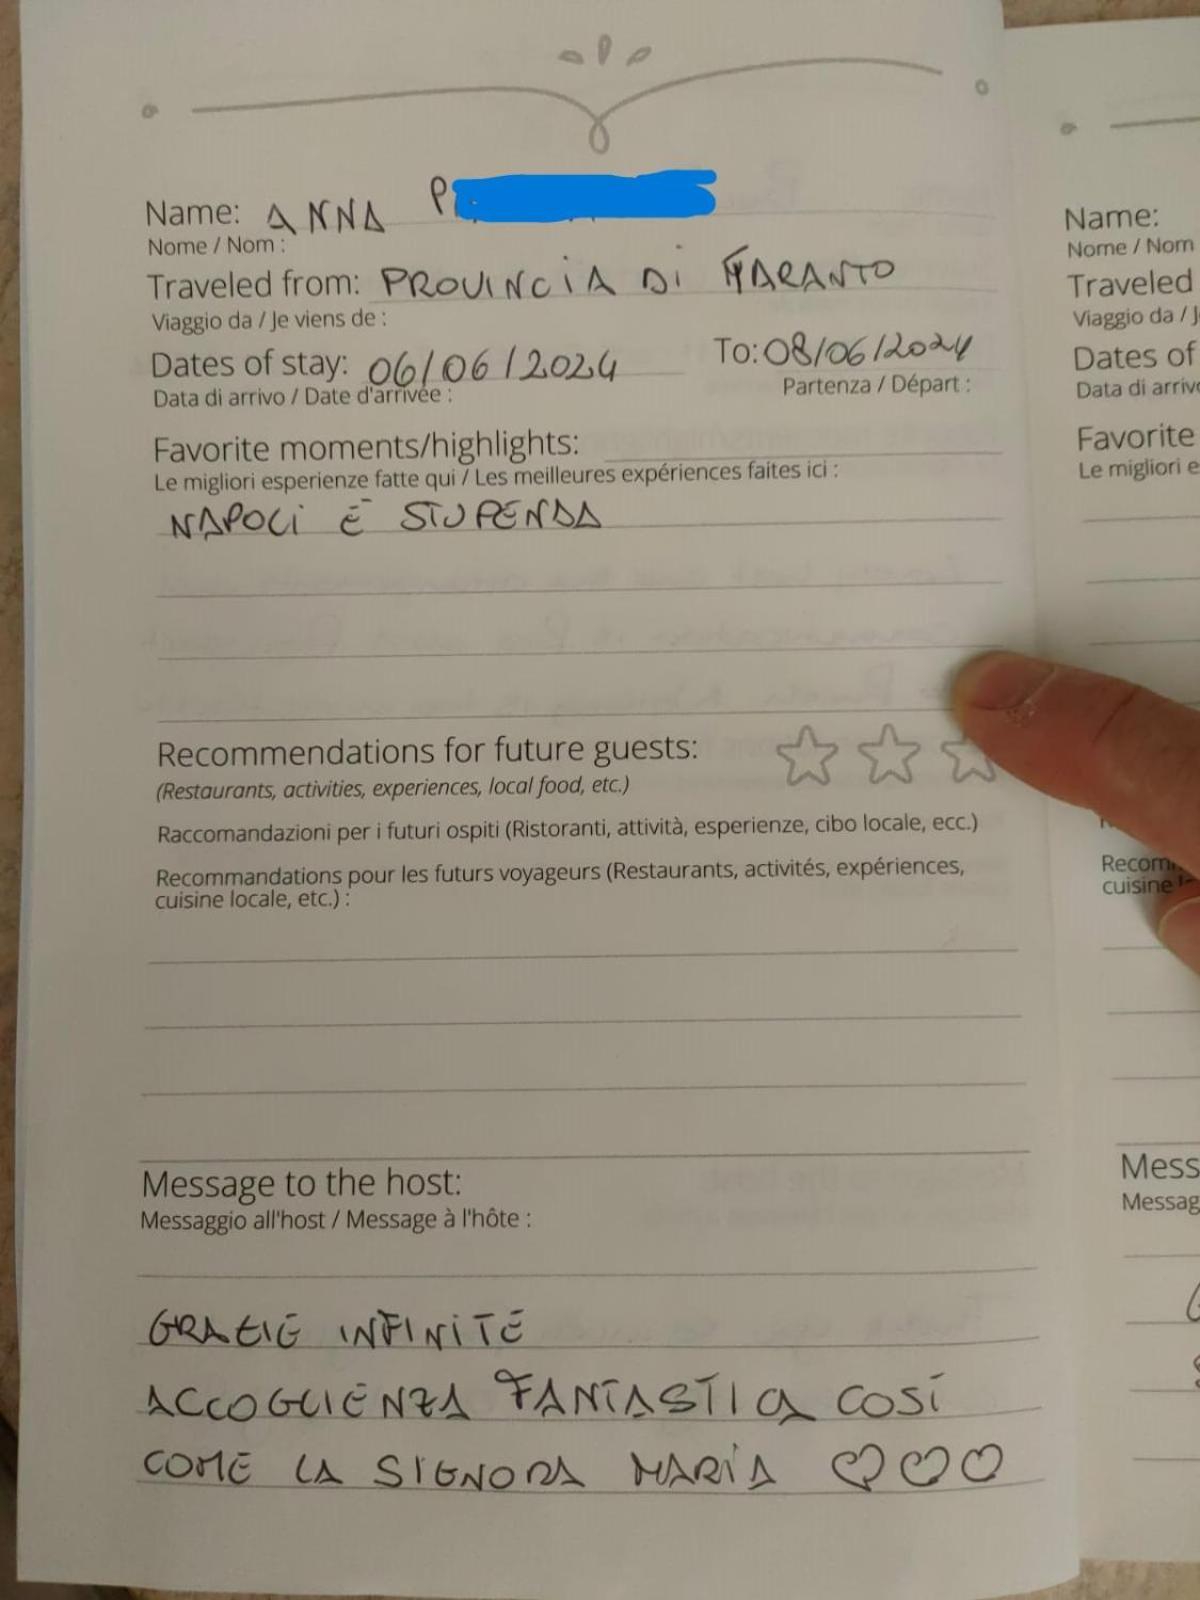 Name: ANNA P
Nome / Nom :
Traveled from: PROVINCIA DI TARANTO
Viaggio da / Je viens de :
Dates of stay: 06/06/2024 To: 08/06/2024
Data di arrivo / Date d'arrivée : Partenza / Départ :
Favorite moments/highlights:
Le migliori esperienze fatte qui / Les meilleures expériences faites ici :
NAPOLI È STUPENDA
Recommendations for future guests:
(Restaurants, activities, experiences, local food, etc.)
Raccomandazioni per i futuri ospiti (Ristoranti, attività, esperienze, cibo locale, ecc.)
Recommandations pour les futurs voyageurs (Restaurants, activités, expériences,
cuisine locale, etc.) :
Message to the host:
Messaggio all'host / Message à l'hôte :
GRAZIE INFINITE
ACCOGLIENZA FANTASTICA COSÍ
COME LA SIGNORA MARIA ♡♡♡
Name:
Nome / Nom
Traveled
Viaggio da /
Dates of
Data di arriv
Favorite
Le migliori e
Recom
cuisine
Mess
Messag